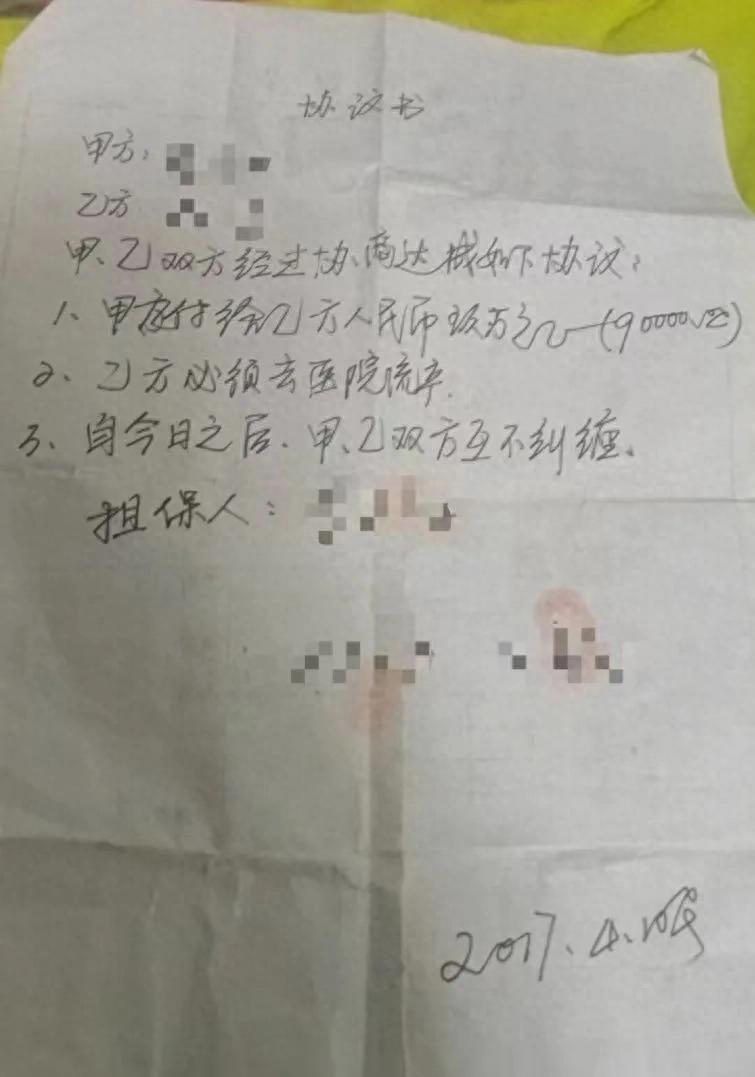 协议书
甲方:
乙方
甲、乙双方经过协商达成如下协议:
1、甲方付给乙方人民币玖万元(90000元)
2、乙方必须去医院流产.
3、自今日之后、甲、乙双方互不纠缠、
担保人:
2017.4.